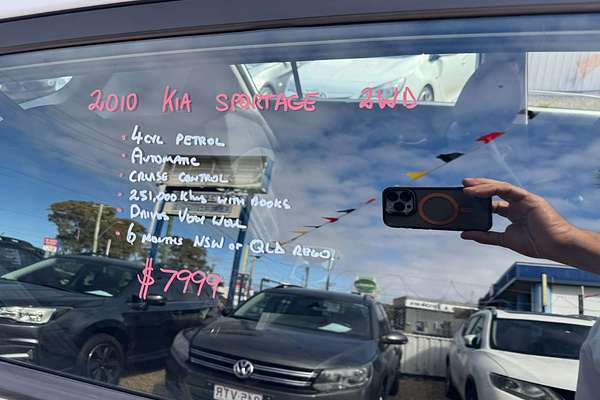 2010 KIA SPORTAGE 2WD
4CYL PETROL
AUTOMATIC
CRUISE CONTROL
251,000 Klms WITH BOOKS
DRIVES VERY WELL
6 MONTHS NSW OR QLD REGO
$7999